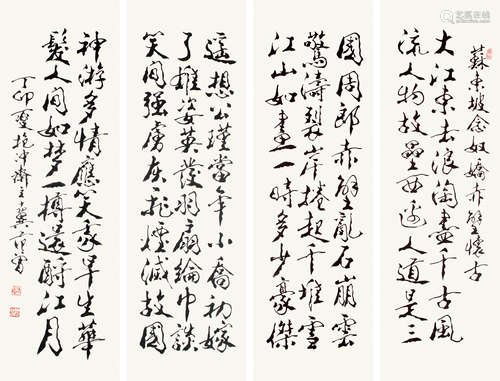 蘇東坡念奴嬌赤壁懷古
大江東去浪淘盡千古風
流人物故壘西邊人道是三
國周郎赤壁亂石崩雲
驚濤裂岸捲起千堆雪
江山如畫一時多少豪傑
遥想公瑾當年小喬初嫁
了雄姿英發羽扇綸巾談
笑間强虜灰飛煙滅故國
神游多情應笑我早生華
髮人間如夢一樽還酹江月
丁卯夏抱沖齋主十翼范曾